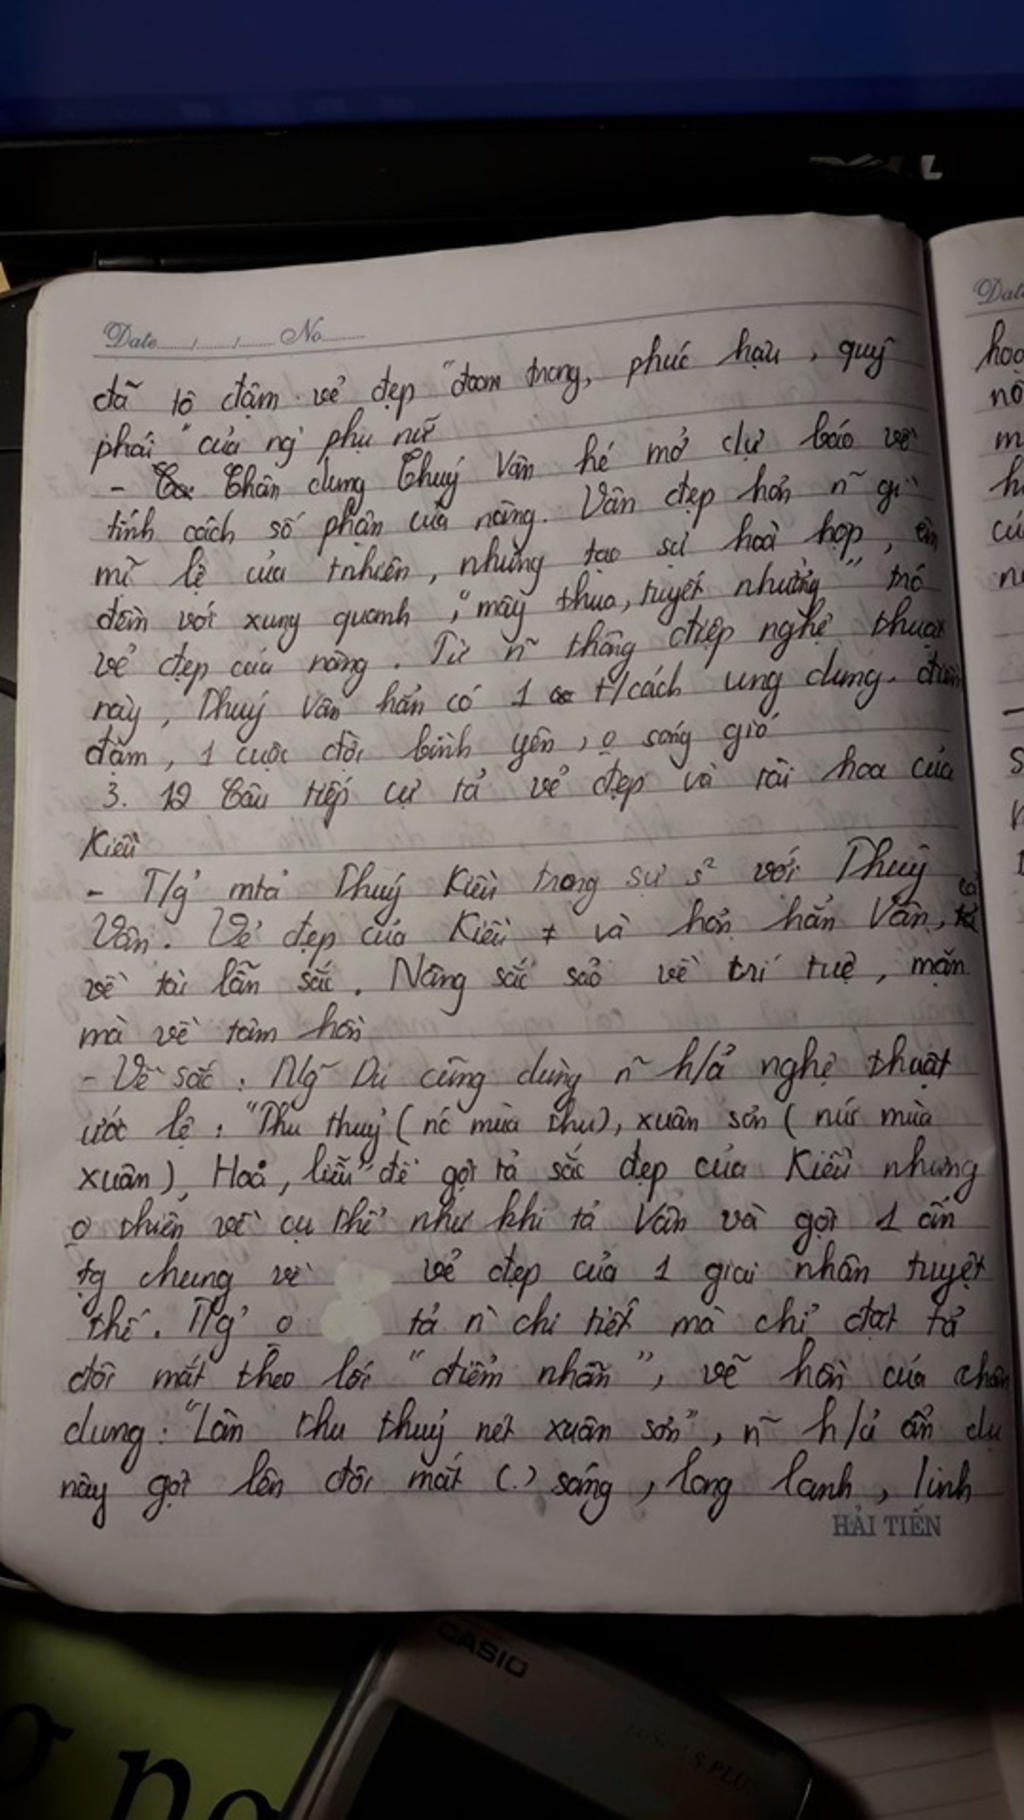 Date...../...../..... No.........
đã tô đậm vẻ đẹp "đoan trang, phúc hậu, quý
phái" của ng phụ nữ
- Chân dung Thuý Vân hé mở dự báo về
tính cách số phận của nàng. Vân đẹp hơn n~ gì
mĩ lệ của tnhiên, nhưng tạo sự hoà hợp, êm
đềm với xung quanh, "mây thua, tuyết nhường"
vẻ đẹp của nàng. Từ n~ thông điệp nghệ thuật
này, Thuý Vân hẳn có 1 t/cách ung dung. điềm
đạm, 1 cuộc đời bình yên, o sóng gió
3. 12 Câu tiếp cự tả vẻ đẹp và tài hoa của
Kiều
- T/g' mtả Thuý Kiều trong sự s² với Thuý
Vân. Vẻ đẹp của Kiều ≠ và hơn hẳn Vân, cả
về tài lẫn sắc. Nàng sắc sảo về trí tuệ, mặn
mà về tâm hồn
- Về sắc: Ng~ Du cũng dùng n~ h/ả nghệ thuật
ước lệ: "Thu thuỷ (nc mùa thu), xuân sơn (núi mùa
xuân), Hoa, liễu" để gợi tả sắc đẹp của Kiều nhưng
o thiên về cụ thể như khi tả Vân và gợi 1 ấn
tg chung về vẻ đẹp của 1 giai nhân tuyệt
thế. T/g' o tả n` chi tiết mà chỉ đặt tả
đôi mắt theo lối "điểm nhãn", vẽ hồn của chân
dung: "Làn thu thuỷ nét xuân sơn", n~ h/ả ẩn dụ
này gợi lên đôi mắt (.) sáng, long lanh, linh
HẢI TIẾN
Date
m
h
n
S
CASIO